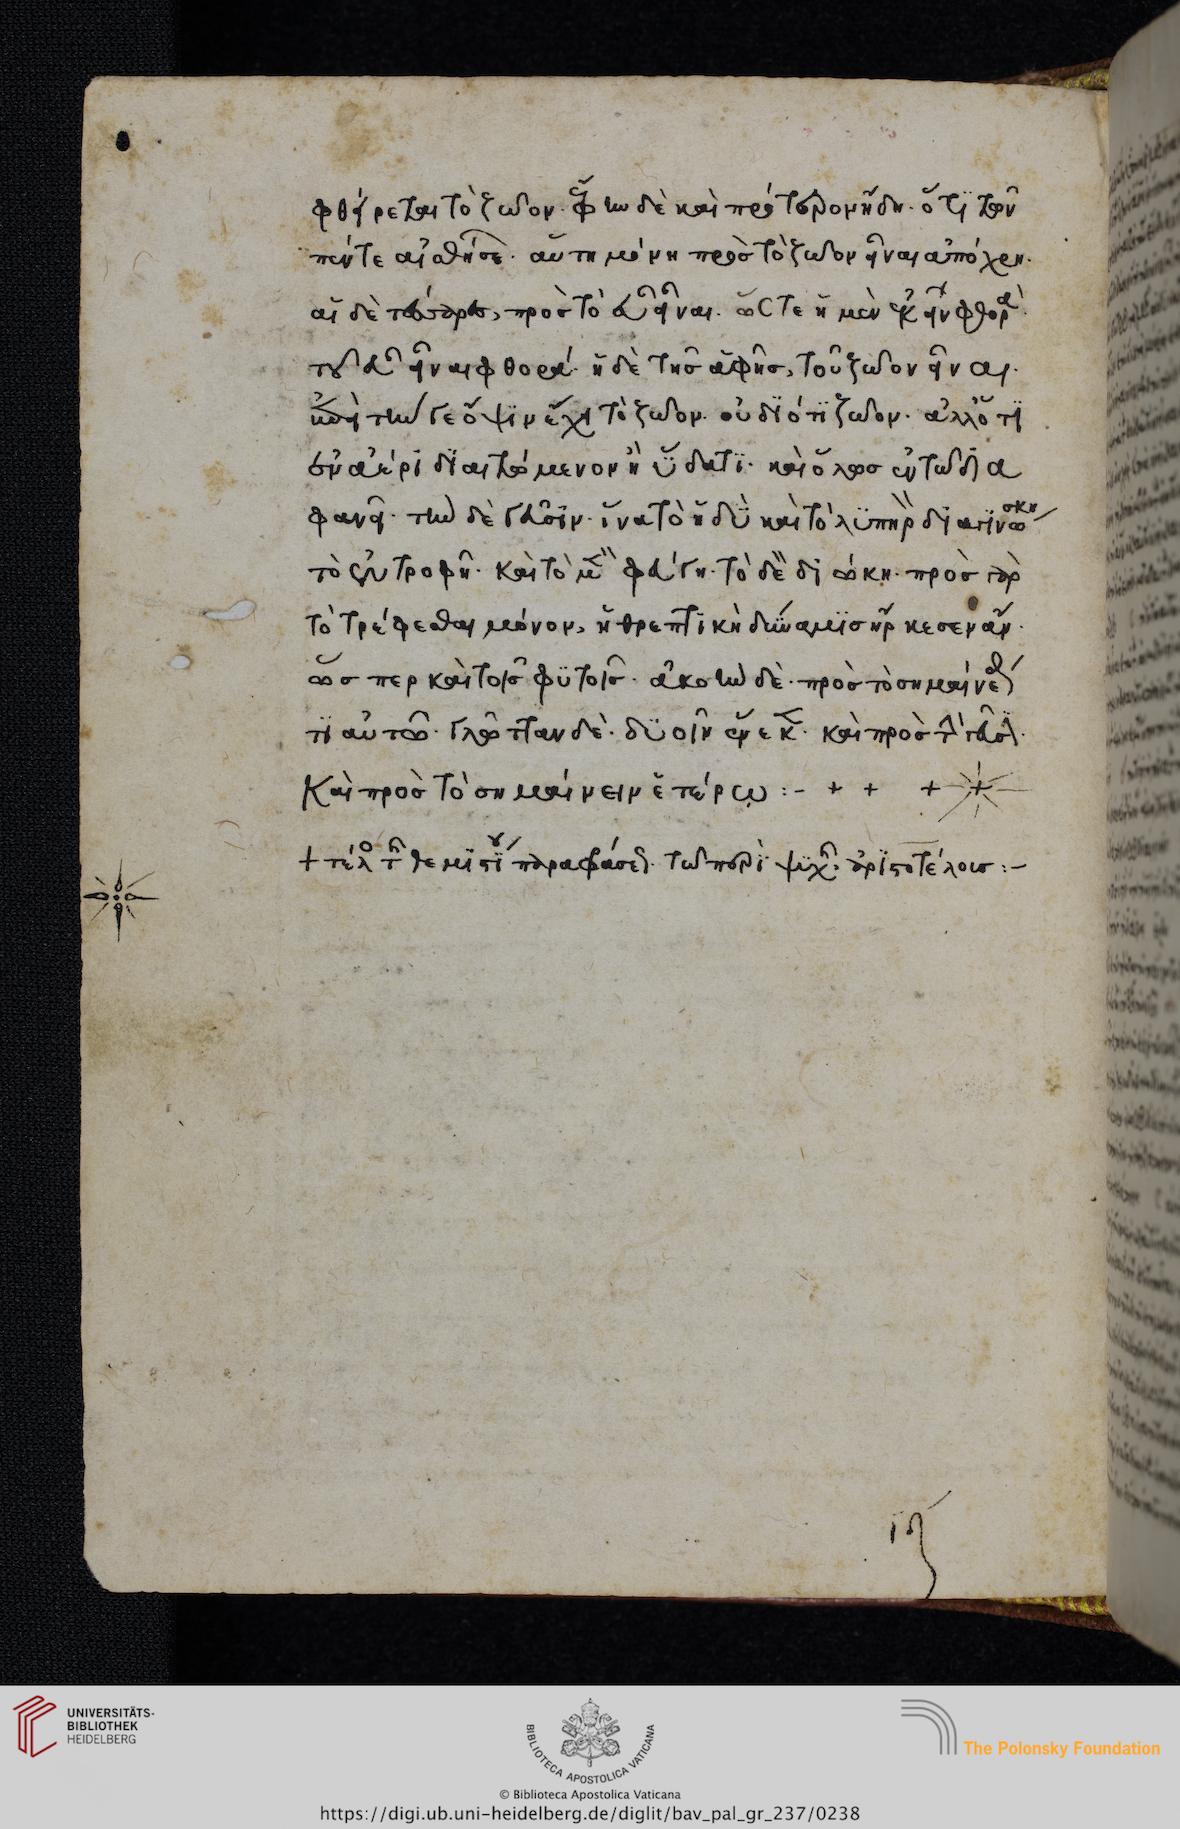 φθείρεται τὸ ζῶον. ἔφην δὲ καὶ πρότερον ἤδη. ὅτι τῶν
πέντε αἰσθήσεων. αὕτη μόνη πρὸς τὸ ζῶον εἶναι ἀπόχρη.
αἱ δὲ τέσσαρες, πρὸς τὸ εὖ εἶναι. ὥστε ἡ μὲν ἐκείνων φθορὰ
τοῦ εὖ εἶναι φθορά. ἡ δὲ τῆς ἁφῆς, τοῦ ζῶον εἶναι.
ἐπεὶ τήν γε ὄψιν ἔχει τὸ ζῶον. οὐ διότι ζῶον. ἀλλ' ὅτι
ἐν ἀέρι διαιτώμενον ἢ ὕδατι. καὶ ὅλως ἐν τῶ δια
φανεῖ. τὴν δὲ γεῦσιν. ἵνα τὸ ἡδὺ καὶ τὸ λυπηρὸν διαγινώσκη
τὸ ἐν τροφῆ. καὶ τὸ μὲν φεύγη. τὸ δὲ διώκη. πρὸς γὰρ
τὸ τρέφεσθαι μόνον, ἡ θρεπτικὴ δύναμις ἤρκεσεν ἄν.
ὥσπερ καὶ τοῖς φυτοῖς. ἀκοὴν δὲ. πρὸς τὸ σημαίνεσθαί
τι αὐτῶ. γλῶτταν δὲ. δυοῖν ἕνεκα. καὶ πρὸς τὴν γεῦσιν.
Καὶ πρὸς τὸ σημαίνειν ἑτέρω :- + + + +
+ τέλος τῆς θεμιστίου παραφράσεως. τῶν περὶ ψυχῆς ἀριστοτέλους :-
UNIVERSITÄTS-
BIBLIOTHEK
HEIDELBERG
BIBLIOTECA APOSTOLICA VATICANA
The Polonsky Foundation
© Biblioteca Apostolica Vaticana
https://digi.ub.uni-heidelberg.de/diglit/bav_pal_gr_237/0238